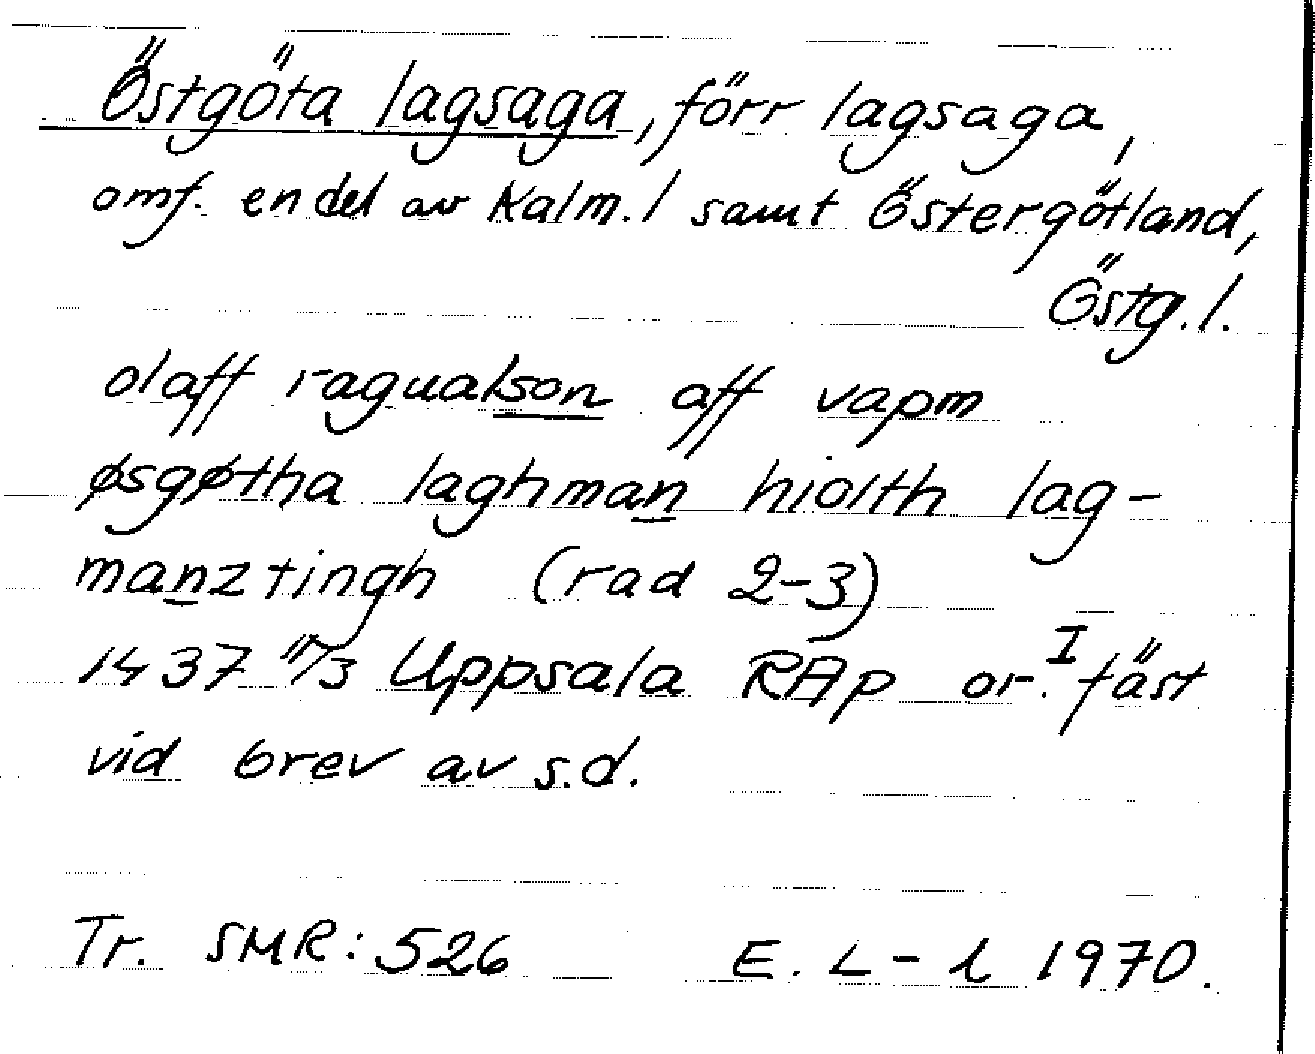 Östgöta lagsaga, förr lagsaga,
omf. en del av Kalm. l samt Östergötland,
Östg. l.
olaff ragualson aff vapm
øsgøtha laghman hiolth lag-
manztingh (rad 2-3)
1437 11/3 Uppsala RAp or. I fäst
vid brev av s.d.
Tr. SMR: 526 E. L-l 1970.